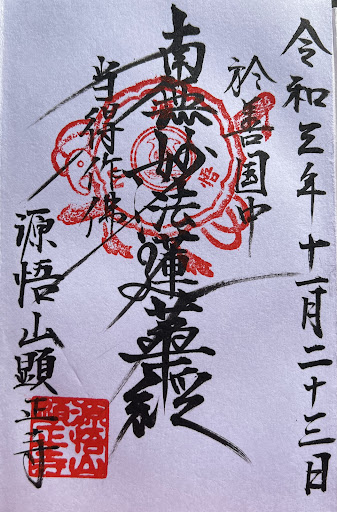 令和三年十一月二十三日
於善国中
南無妙法蓮華経
当得作佛
源悟山顕正寺
源悟山
顕正寺